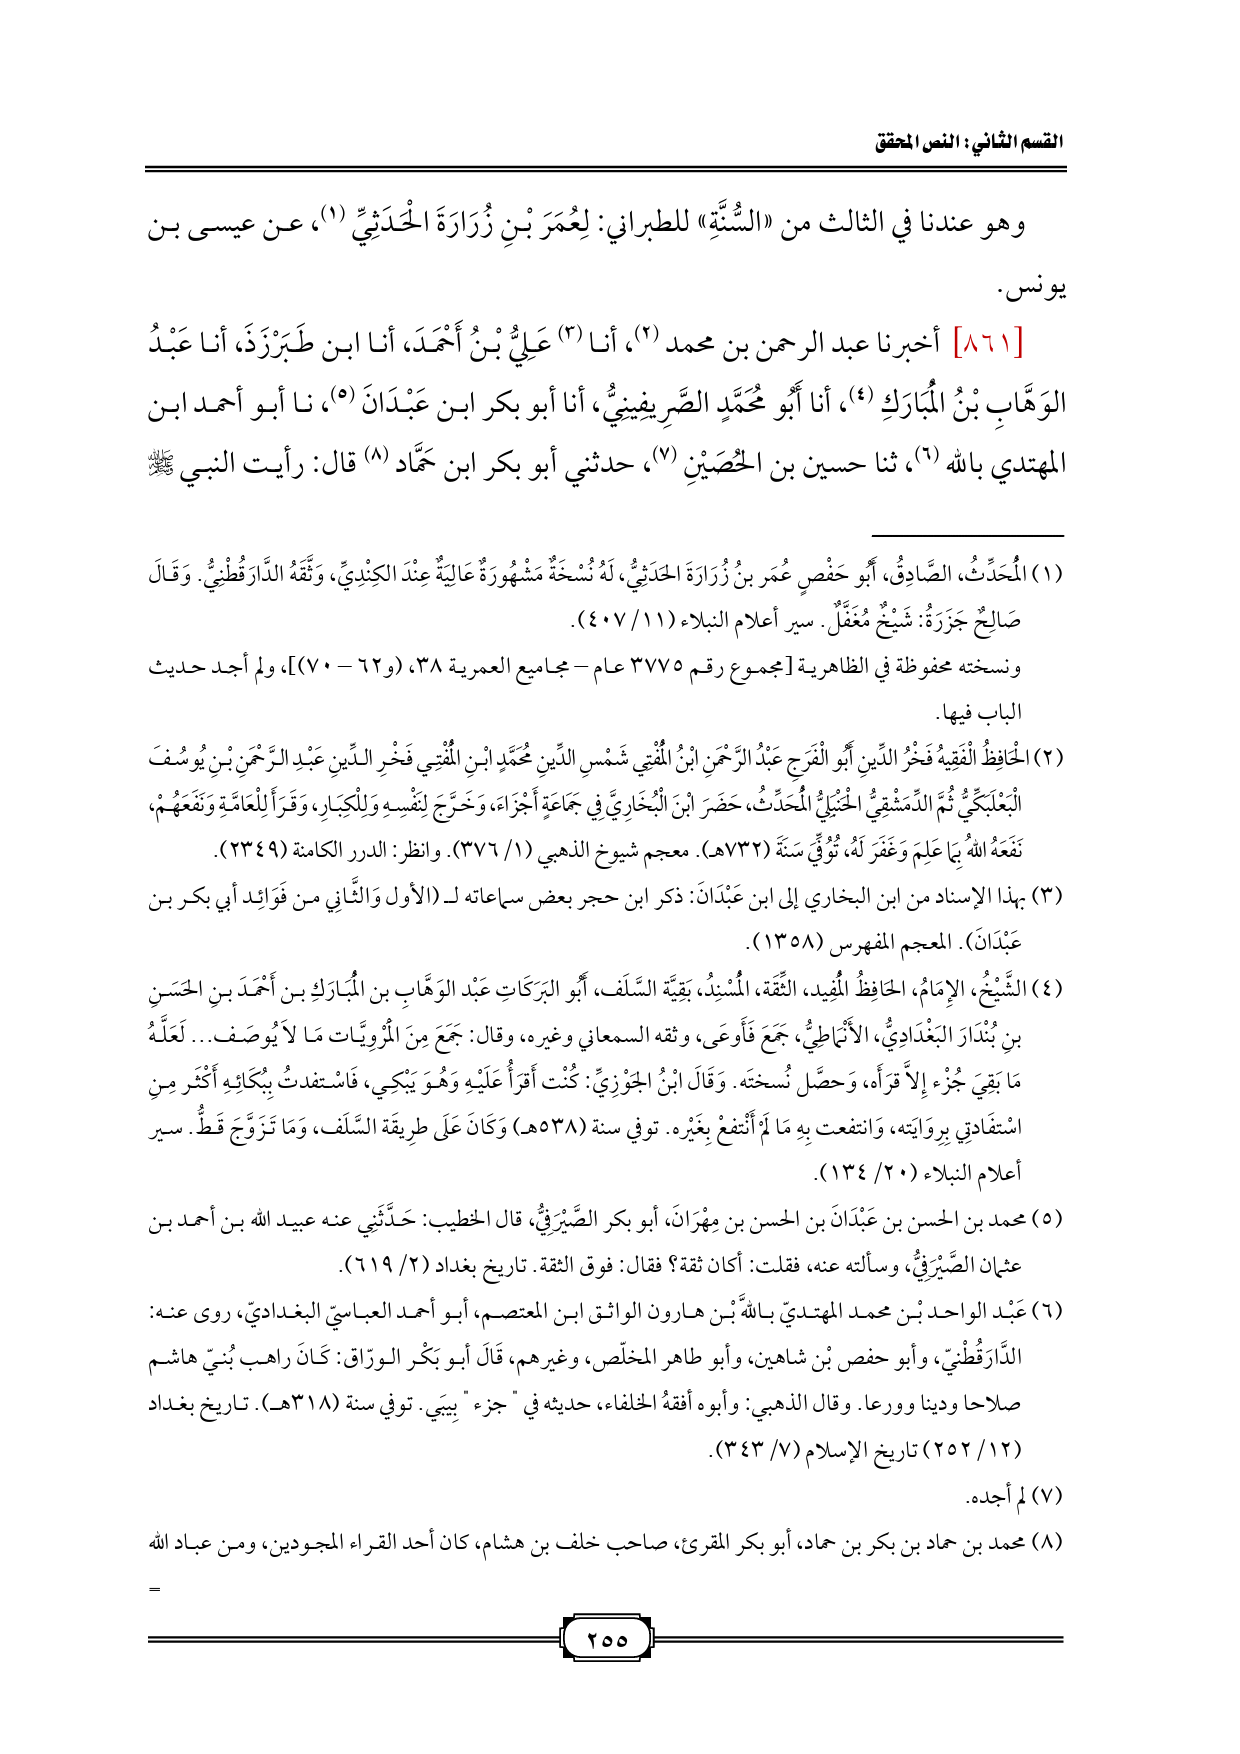 القسم الثاني: النص المحقق
وهو عندنا في الثالث من «السُّنَّةِ» للطبراني: لِعُمَرَ بْنِ زُرَارَةَ الْحَدَثِيِّ (١)، عن عيسى بن
يونس.
[٨٦١] أخبرنا عبد الرحمن بن محمد (٢)، أنا (٣) عَلِيُّ بْنُ أَحْمَدَ، أنا ابن طَبَرْزَذَ، أنا عَبْدُ
الوَهَّابِ بْنُ الْمُبَارَكِ (٤)، أنا أَبُو مُحَمَّدٍ الصَّرِيفِينِيُّ، أنا أبو بكر ابن عَبْدَانَ (٥)، نا أبو أحمد ابن
المهتدي بالله (٦)، ثنا حسين بن الحُصَيْنِ (٧)، حدثني أبو بكر ابن حَمَّاد (٨) قال: رأيت النبي ﷺ
(١) الْمُحَدِّثُ، الصَّادِقُ، أَبُو حَفْصٍ عُمَر بنُ زُرَارَةَ الحَدَثِيُّ، لَهُ نُسْخَةٌ مَشْهُورَةٌ عَالِيَةٌ عِنْدَ الكِنْدِيِّ، وَثَّقَهُ الدَّارَقُطْنِيُّ. وَقَالَ
صَالِحٌ جَزَرَةُ: شَيْخٌ مُغَفَّلٌ. سير أعلام النبلاء (١١/ ٤٠٧).
ونسخته محفوظة في الظاهرية [مجموع رقم ٣٧٧٥ عام – مجاميع العمرية ٣٨، (و٦٢ – ٧٠)]، ولم أجد حديث
الباب فيها.
(٢) الْحَافِظُ الْفَقِيهُ فَخْرُ الدِّينِ أَبُو الْفَرَجِ عَبْدُ الرَّحْمَنِ ابْنُ الْمُفْتِي شَمْسِ الدِّينِ مُحَمَّدٍ ابْنِ الْمُفْتِي فَخْرِ الدِّينِ عَبْدِ الرَّحْمَنِ بْنِ يُوسُفَ
الْبَعْلَبَكِّيُّ ثُمَّ الدِّمَشْقِيُّ الْحَنْبَلِيُّ الْمُحَدِّثُ، حَضَرَ ابْنَ الْبُخَارِيَّ فِي جَمَاعَةٍ أَجْزَاءَ، وَخَرَّجَ لِنَفْسِهِ وَلِلْكِبَارِ، وَقَرَأَ لِلْعَامَّةِ وَنَفَعَهُمْ،
نَفَعَهُ اللهُ بِمَا عَلِمَ وَغَفَرَ لَهُ، تُوُفِّيَ سَنَةَ (٧٣٢هـ). معجم شيوخ الذهبي (١/ ٣٧٦). وانظر: الدرر الكامنة (٢٣٤٩).
(٣) بهذا الإسناد من ابن البخاري إلى ابن عَبْدَانَ: ذكر ابن حجر بعض سماعاته لـ (الأول وَالثَّانِي من فَوَائِد أبي بكر بن
عَبْدَانَ). المعجم المفهرس (١٣٥٨).
(٤) الشَّيْخُ، الإِمَامُ، الحَافِظُ الْمُفِيد، الثِّقَة، الْمُسْنِدُ، بَقِيَّة السَّلَف، أَبُو البَرَكَاتِ عَبْد الوَهَّابِ بن الْمُبَارَكِ بن أَحْمَدَ بنِ الحَسَنِ
بنِ بُنْدَارَ البَغْدَادِيُّ، الأَنْمَاطِيُّ، جَمَعَ فَأَوعَى، وثقه السمعاني وغيره، وقال: جَمَعَ مِنَ الْمَرْوِيَّات مَا لاَ يُوصَف... لَعَلَّهُ
مَا بَقِيَ جُزْء إِلاَّ قرَأَه، وَحصَّل نُسختَه. وَقَالَ ابْنُ الجَوْزِيِّ: كُنْت أَقرَأُ عَلَيْهِ وَهُوَ يَبْكِي، فَاسْتفدتُ بِبُكَائِهِ أَكْثَر مِنِ
اسْتفَادتِي بِرِوَايَته، وَانتفعت بِهِ مَا لَمْ أَنْتفعْ بِغَيْره. توفي سنة (٥٣٨هـ) وَكَانَ عَلَى طرِيقَة السَّلَف، وَمَا تَزَوَّجَ قَطُّ. سير
أعلام النبلاء (٢٠/ ١٣٤).
(٥) محمد بن الحسن بن عَبْدَانَ بن الحسن بن مِهْرَانَ، أبو بكر الصَّيْرَفِيُّ، قال الخطيب: حَدَّثَنِي عنه عبيد الله بن أحمد بن
عثمان الصَّيْرَفِيُّ، وسألته عنه، فقلت: أكان ثقة؟ فقال: فوق الثقة. تاريخ بغداد (٢/ ٦١٩).
(٦) عَبْد الواحد بْن محمد المهتديّ باللَّه بْن هارون الواثق ابن المعتصم، أبو أحمد العباسيّ البغداديّ، روى عنه:
الدَّارَقُطْنيّ، وأبو حفص بْن شاهين، وأبو طاهر المخلّص، وغيرهم، قَالَ أبو بَكْر الورّاق: كَانَ راهب بُنيّ هاشم
صلاحا ودينا وورعا. وقال الذهبي: وأبوه أفقهُ الخلفاء، حديثه في "جزء" بِيبَي. توفي سنة (٣١٨هـ). تاريخ بغداد
(١٢/ ٢٥٢) تاريخ الإسلام (٧/ ٣٤٣).
(٧) لم أجده.
(٨) محمد بن حماد بن بكر بن حماد، أبو بكر المقرئ، صاحب خلف بن هشام، كان أحد القراء المجودين، ومن عباد الله
=
٢٥٥